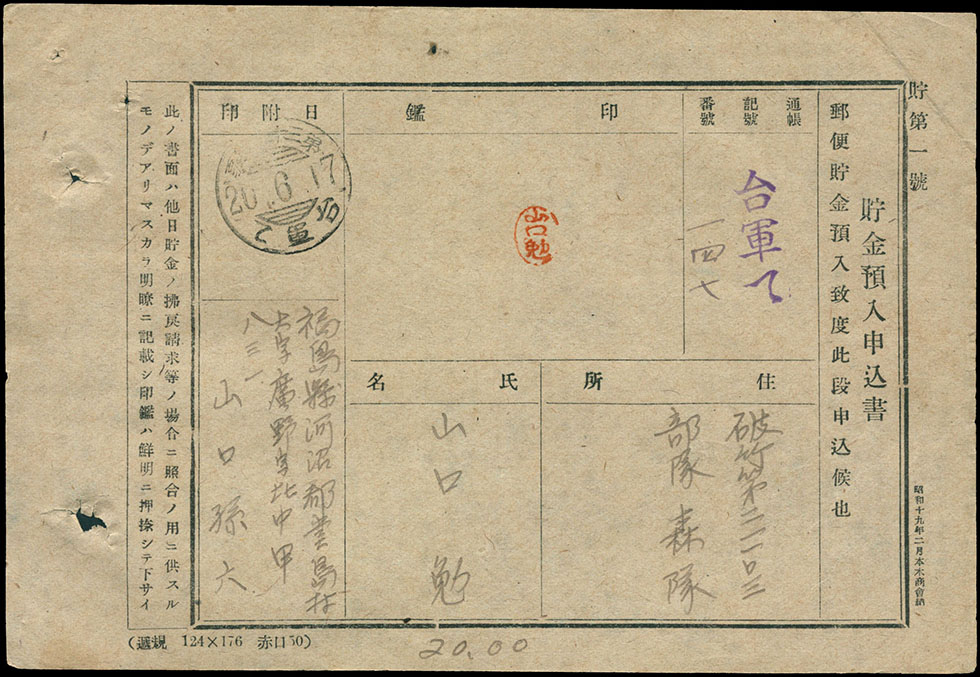 貯第一號
貯金預入申込書
郵便貯金預入致度此段申込候也
昭和十九年二月本木商會納
通帳
記號
番號
台軍て
一四七
印鑑
山口勉
住所
破竹第二一〇三
部隊 森隊
氏名
山口 勉
日附印
20.6.17
福島縣河沼郡堂島村
大字廣野字北中甲
八三一
山口孫六
此ノ書面ハ他日貯金ノ拂戾請求等ノ場合ニ照合ノ用ニ供スル
モノデアリマスカラ明瞭ニ記載シ印鑑ハ鮮明ニ押捺シテ下サイ
(遞規 124×176 赤口50)
20.00